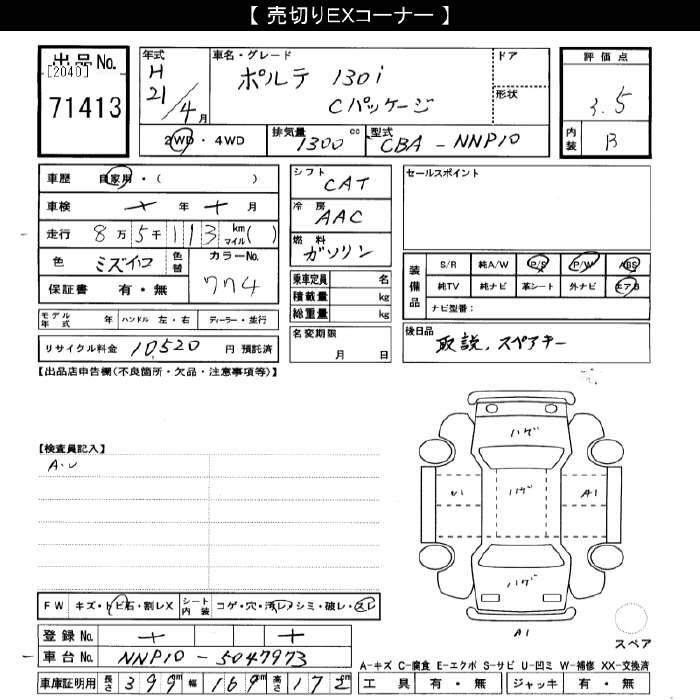 【 売切りEXコーナー 】
出品No.
[2040]
71413
年式
H
21/4月
車名・グレード
ポルテ 130i
Cパッケージ
ドア
形状
評価点
3.5
内装 B
2WD・4WD
排気量 1300 cc
型式 CBA - NNP10
車歴 自家用・( )
車検 年 月
走行 8万5千113 km マイル( )
色 ミズイロ 色替
カラーNo. 774
保証書 有・無
シフト CAT
冷房 AAC
燃料 ガソリン
乗車定員 名
積載量 kg
総重量 kg
セールスポイント
装備品
S/R 純A/W P/S P/W ABS
純TV 純ナビ 革シート 外ナビ エアB
ナビ型番:
モデル年式 年 ハンドル 左・右 ディーラー・並行
リサイクル料金 10,520 円 預託済
名変期限
月 日
後日品 取説、スペアキー
【出品店申告欄(不良箇所・欠品・注意事項等)】
【検査員記入】
A・U
ハゲ
U1 ハゲ A1
ハゲ
A1
スペア
FW キズ・トビ石・割レX
シート内装 コゲ・穴・汚レ・シミ・破レ・スレ
登録No.
車台No. NNP10 - 5047973
A-キズ C-腐食 E-エクボ S-サビ U-凹ミ W-補修 XX-交換済
車庫証明用 長さ 399 幅 169 高さ 172
工具 有・無 ジャッキ 有・無